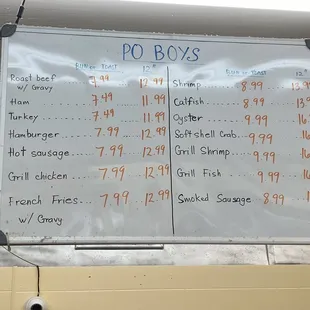 PO BOYS
Bun or Toast 12"
Roast beef 7.99 12.99
w/ Gravy
Ham 7.49 11.99
Turkey 7.49 11.99
Hamburger 7.99 12.99
Hot sausage 7.99 12.99
Grill chicken 7.99 12.99
French Fries 7.99 12.99
w/ Gravy
Bun or Toast 12"
Shrimp 8.99
Catfish 8.99
Oyster 9.99
Soft shell Crab 9.99
Grill Shrimp 9.99
Grill Fish 9.99
Smoked Sausage 8.99